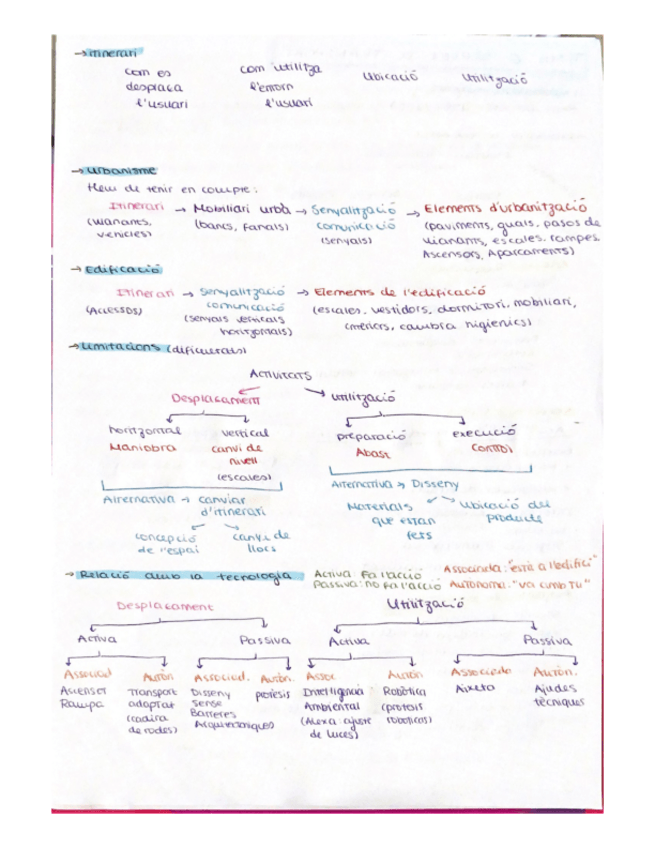 → itinerari
com es desplaca l'usuari
com utilitza l'entorn l'usuari
Ubicació
Utilització
→ Urbanisme
Hem de tenir en compte:
Itinerari → Mobiliari urbà → Senyalització comunicació → Elements d'urbanització
(vianants, vehicles)
(bancs, fanals)
(senyals)
(paviments, guals, pasos de vianants, escales, rampes, Ascensors, Aparcaments)
→ Edificació
Itinerari → Senyalització comunicació → Elements de l'edificació
(Accessos)
(senyals verticals horitzontals)
(escales, vestidors, dormitori, mobiliari, interiors, cambra higienics)
→ Limitacions (dificultats)
Activitats
Desplacament
Utilització
horitzontal
vertical
preparació
execució
Maniobra
canvi de nivell
Abast
Control
(escales)
Alternativa → canviar d'itinerari
Alternativa → Disseny
concepció de l'espai
canvi de llocs
Materials que estan fets
ubicació del products
→ Relació amb la tecnologia
Activa: Fa l'acció
Passiva: no fa l'acció
Associada: "està a l'edifici"
Autònoma: "va amb tu"
Desplacament
Utilització
Activa
Passiva
Activa
Passiva
Associad
Autòn.
Associad.
Autòn.
Assoc.
Autòn
Associado
Autòn.
Ascensor
Rampa
Transport adaptat (cadira de rodes)
Disseny sense Barreres Arquitectoniques
protesis
Inteligencia Ambiental (Alexa ajuste de luces)
Robòtica (protesis roboticas)
Aixeta
Ajudes tècniques